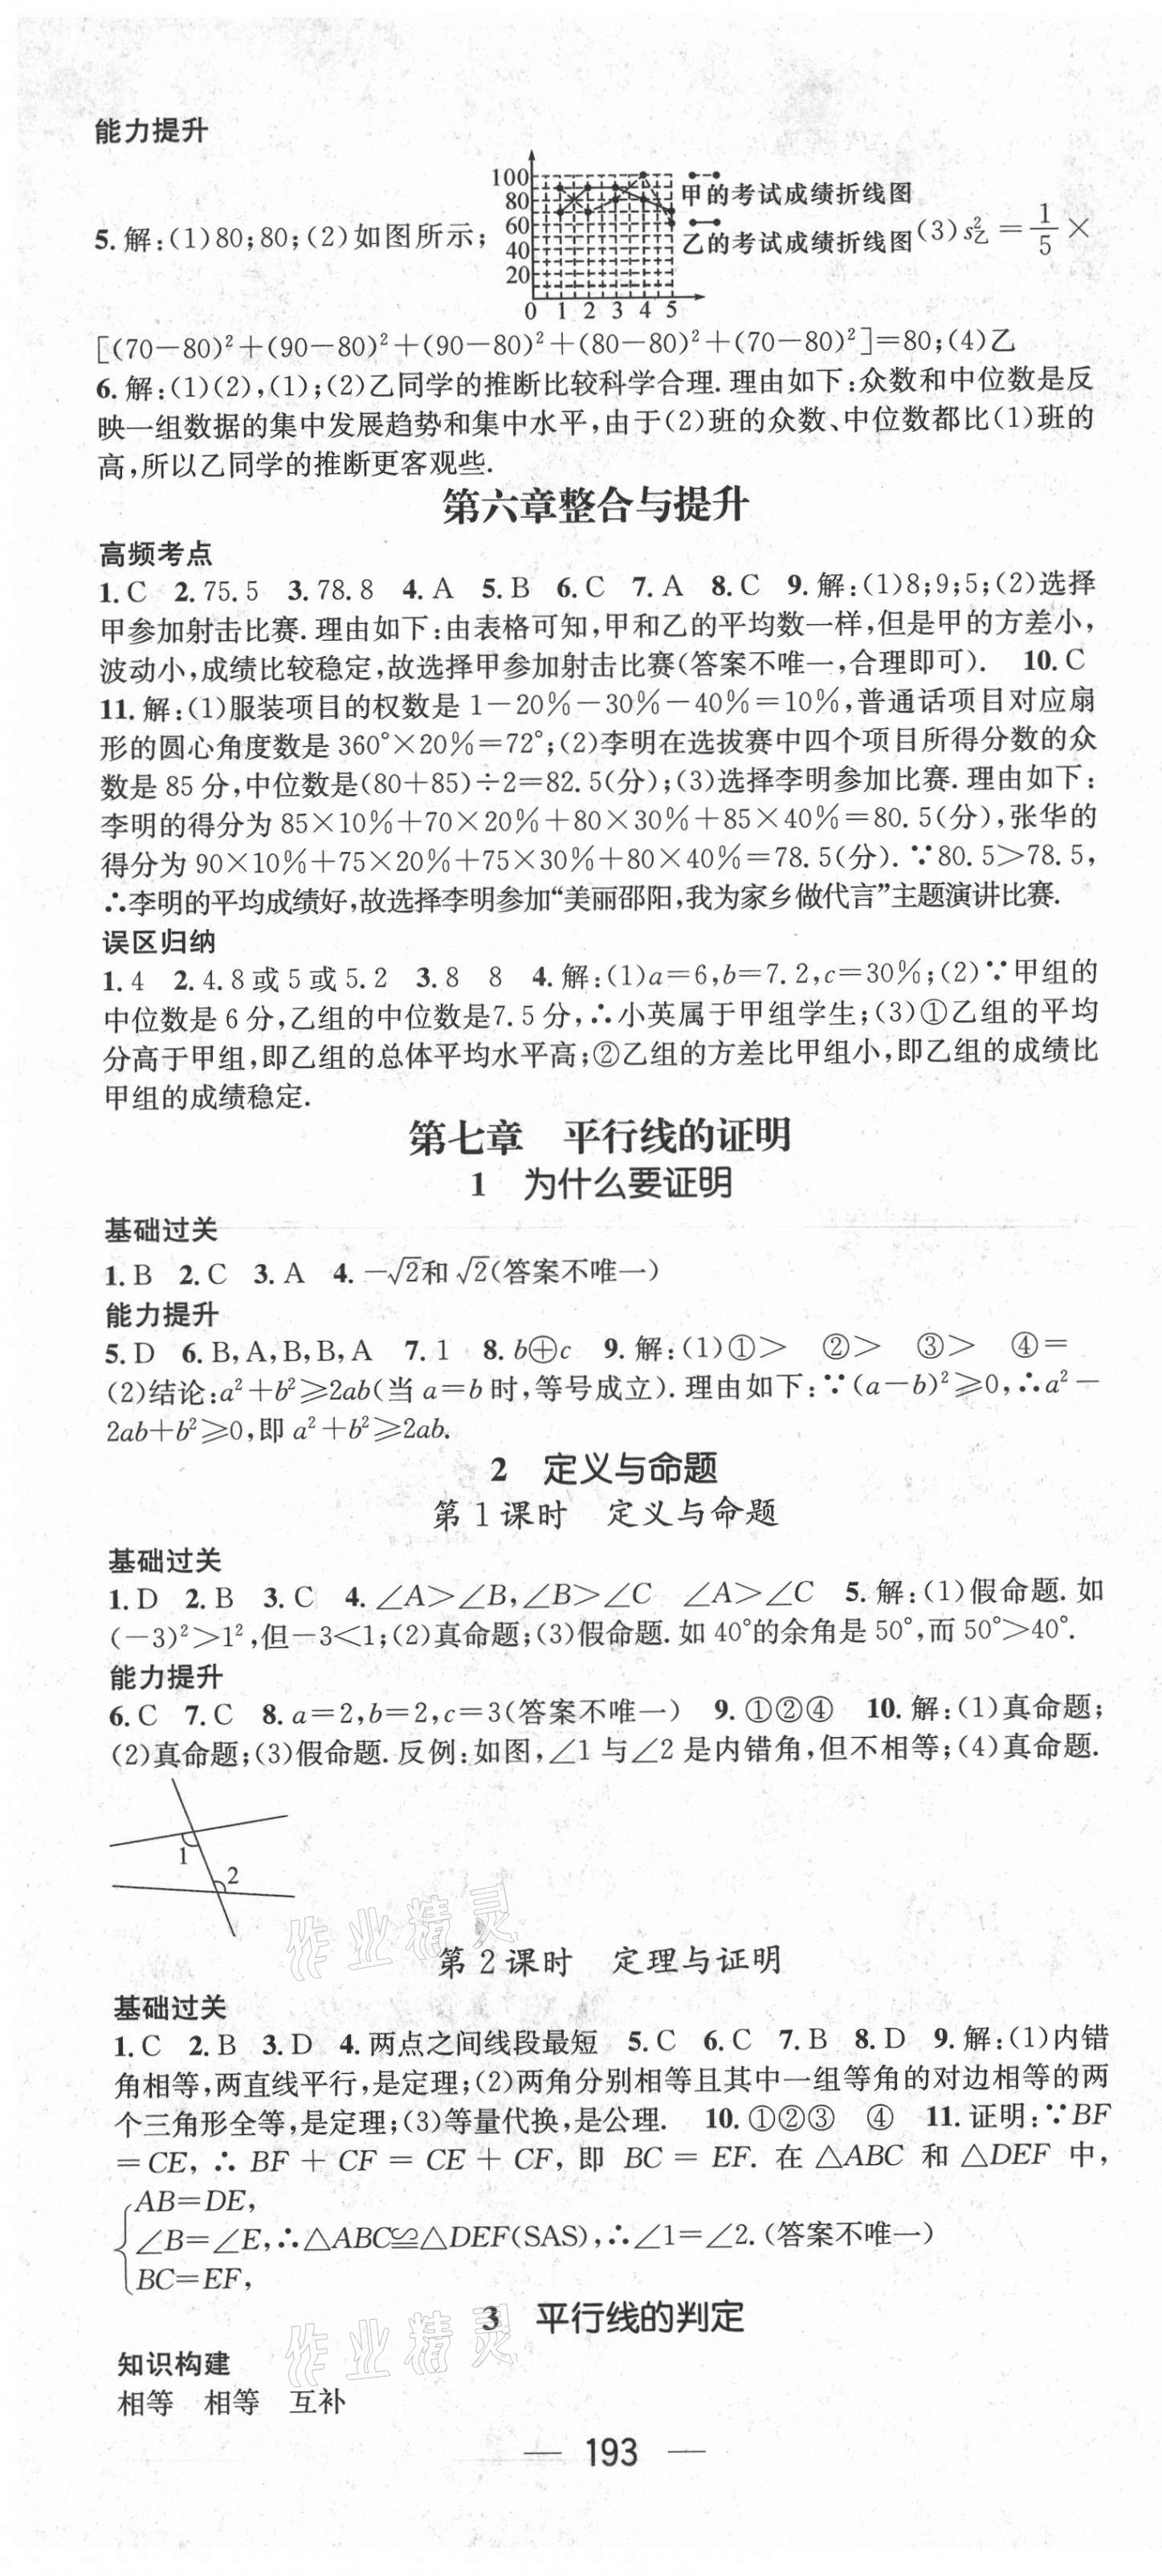 能力提升
100
80
60
40
20
0 1 2 3 4 5
甲的考试成绩折线图
乙的考试成绩折线图
5. 解:(1)80;80;(2)如图所示; (3)s²乙=1/5×
[(70-80)²+(90-80)²+(90-80)²+(80-80)²+(70-80)²]=80;(4)乙
6. 解:(1)(2),(1);(2)乙同学的推断比较科学合理.理由如下:众数和中位数是反
映一组数据的集中发展趋势和集中水平,由于(2)班的众数、中位数都比(1)班的
高,所以乙同学的推断更客观些.
第六章整合与提升
高频考点
1. C 2. 75.5 3. 78.8 4. A 5. B 6. C 7. A 8. C 9. 解:(1)8;9;5;(2)选择
甲参加射击比赛.理由如下:由表格可知,甲和乙的平均数一样,但是甲的方差小,
波动小,成绩比较稳定,故选择甲参加射击比赛(答案不唯一,合理即可). 10. C
11. 解:(1)服装项目的权数是 1-20%-30%-40%=10%,普通话项目对应扇
形的圆心角度数是 360°×20%=72°;(2)李明在选拔赛中四个项目所得分数的众
数是 85 分,中位数是(80+85)÷2=82.5(分);(3)选择李明参加比赛.理由如下:
李明的得分为 85×10%+70×20%+80×30%+85×40%=80.5(分),张华的
得分为 90×10%+75×20%+75×30%+80×40%=78.5(分).∵80.5>78.5,
∴李明的平均成绩好,故选择李明参加“美丽邵阳,我为家乡做代言”主题演讲比赛.
误区归纳
1. 4 2. 4.8或5或5.2 3. 8 8 4. 解:(1)a=6,b=7.2,c=30%;(2)∵甲组的
中位数是 6 分,乙组的中位数是7.5 分,∴小英属于甲组学生;(3)①乙组的平均
分高于甲组,即乙组的总体平均水平高;②乙组的方差比甲组小,即乙组的成绩比
甲组的成绩稳定.
第七章 平行线的证明
1 为什么要证明
基础过关
1. B 2. C 3. A 4. -√2和√2(答案不唯一)
能力提升
5. D 6. B,A,B,B,A 7. 1 8. b⊕c 9. 解:(1)①> ②> ③> ④=
(2)结论:a²+b²≥2ab(当 a=b 时,等号成立).理由如下:∵(a-b)²≥0,∴a²-
2ab+b²≥0,即 a²+b²≥2ab.
2 定义与命题
第1课时 定义与命题
基础过关
1. D 2. B 3. C 4. ∠A>∠B,∠B>∠C ∠A>∠C 5. 解:(1)假命题.如
(-3)²>1²,但-3<1;(2)真命题;(3)假命题.如 40°的余角是 50°,而 50°>40°.
能力提升
6. C 7. C 8. a=2,b=2,c=3(答案不唯一) 9. ①②④ 10. 解:(1)真命题;
(2)真命题;(3)假命题.反例:如图,∠1与∠2 是内错角,但不相等;(4)真命题.
1
2
作业精灵
第2课时 定理与证明
基础过关
1. C 2. B 3. D 4. 两点之间线段最短 5. C 6. C 7. B 8. D 9. 解:(1)内错
角相等,两直线平行,是定理;(2)两角分别相等且其中一组等角的对边相等的两
个三角形全等,是定理;(3)等量代换,是公理. 10. ①②③ ④ 11. 证明:∵BF
=CE,∴ BF + CF = CE + CF,即 BC = EF. 在 △ABC 和 △DEF 中,
AB=DE,
∠B=∠E,∴△ABC≌△DEF(SAS),∴∠1=∠2.(答案不唯一)
BC=EF,
3 平行线的判定
作业精灵
知识构建
相等 相等 互补
— 193 —